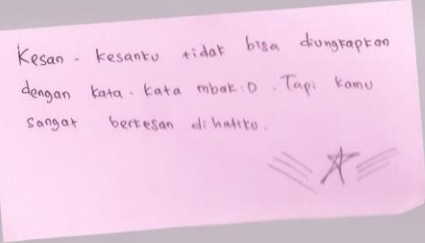 Kesan - kesanku tidak bisa diungkapkan
dengan kata - kata mbak :D . Tapi kamu
sangat berkesan dihatiku.